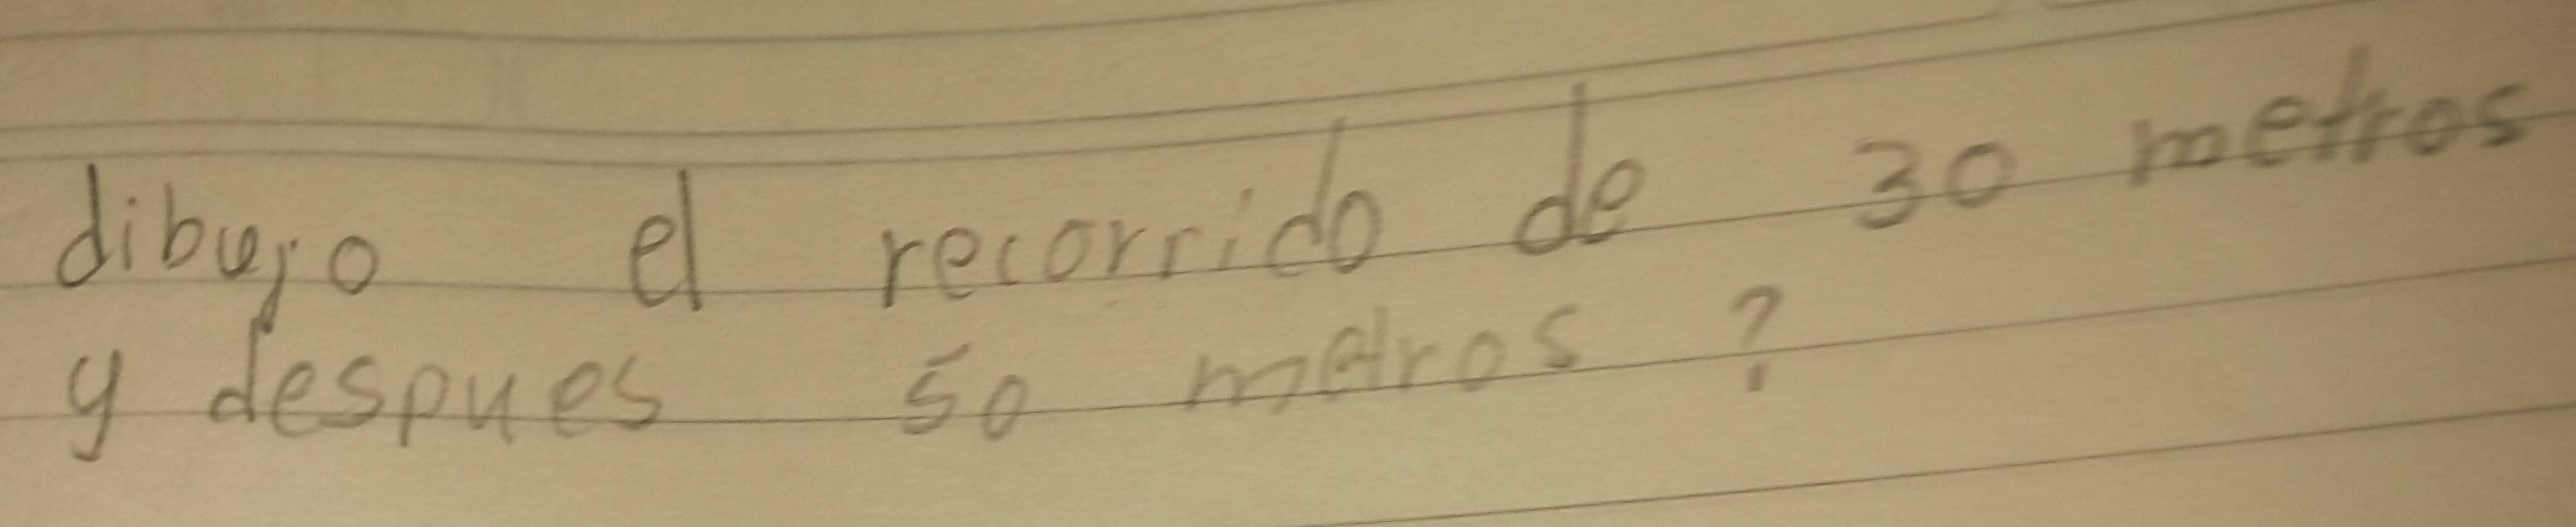 dibujo el recorrido de 30 metros
y despues 50 metros ?